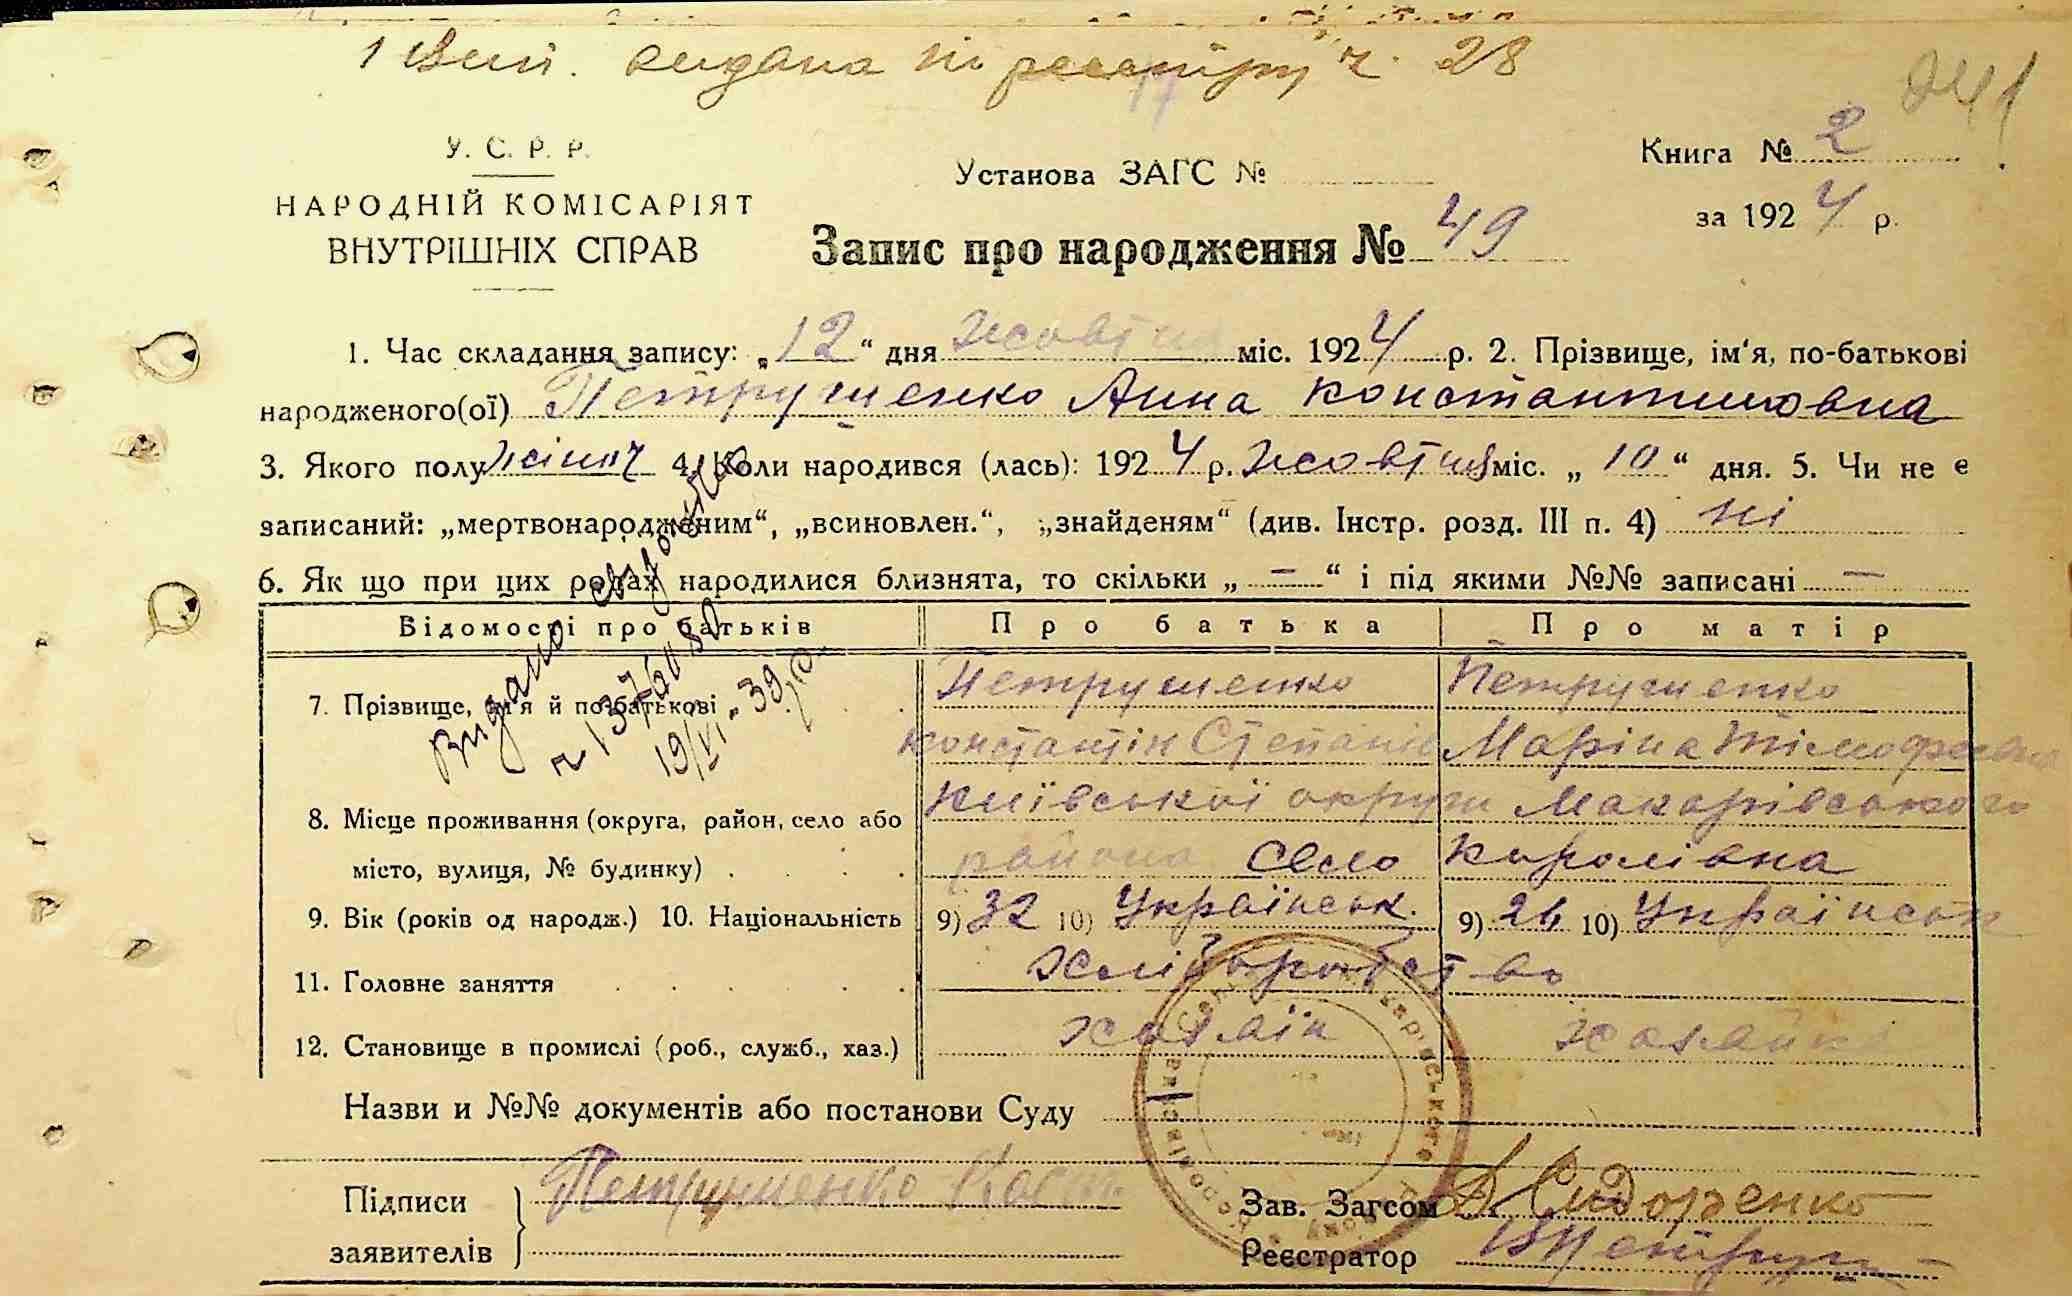 1 видана по реєстру ч. 28
241
У. С. Р. Р.
НАРОДНІЙ КОМІСАРІЯТ
ВНУТРІШНІХ СПРАВ
Установа ЗАГС №
Книга № 2
за 1924 р.
Запис про народження № 49
1. Час складання запису: „12“ дня жовтня міс. 1924 р. 2. Прізвище, ім'я, по-батькові
народженого(ої) Петрушенко Анна Константиновна
3. Якого полу жіноч 4. Коли народився (лась): 1924 р. жовтня міс. „10“ дня. 5. Чи не є
записаний: „мертвонародженим“, „всиновлен.“, „знайденям“ (див. Інстр. розд. III п. 4) ні
6. Як що при цих родах народилися близнята, то скільки „ — “ і під якими №№ записані —
Видано
19/VI-39 р.
Відомості про батьків Про батька Про матір
7. Прізвище, ім'я й по-батькові Петрушенко Петрушенко
Константін Степанів Маріна Тімофеевна
8. Місце проживання (округа, район, село або Київської округи Макарівського
місто, вулиця, № будинку) района село Королівка
9. Вік (років од народж.) 10. Національність 9) 32 10) Українськ. 9) 26 10) Українськ
11. Головне заняття хліборобство
12. Становище в промислі (роб., служб., хаз.) хазяїн хазяйка
Назви и №№ документів або постанови Суду
Підписи Петрушенко Кост.
заявителів
Зав. Загсом А Сидоренко
Реєстратор ВПетруш